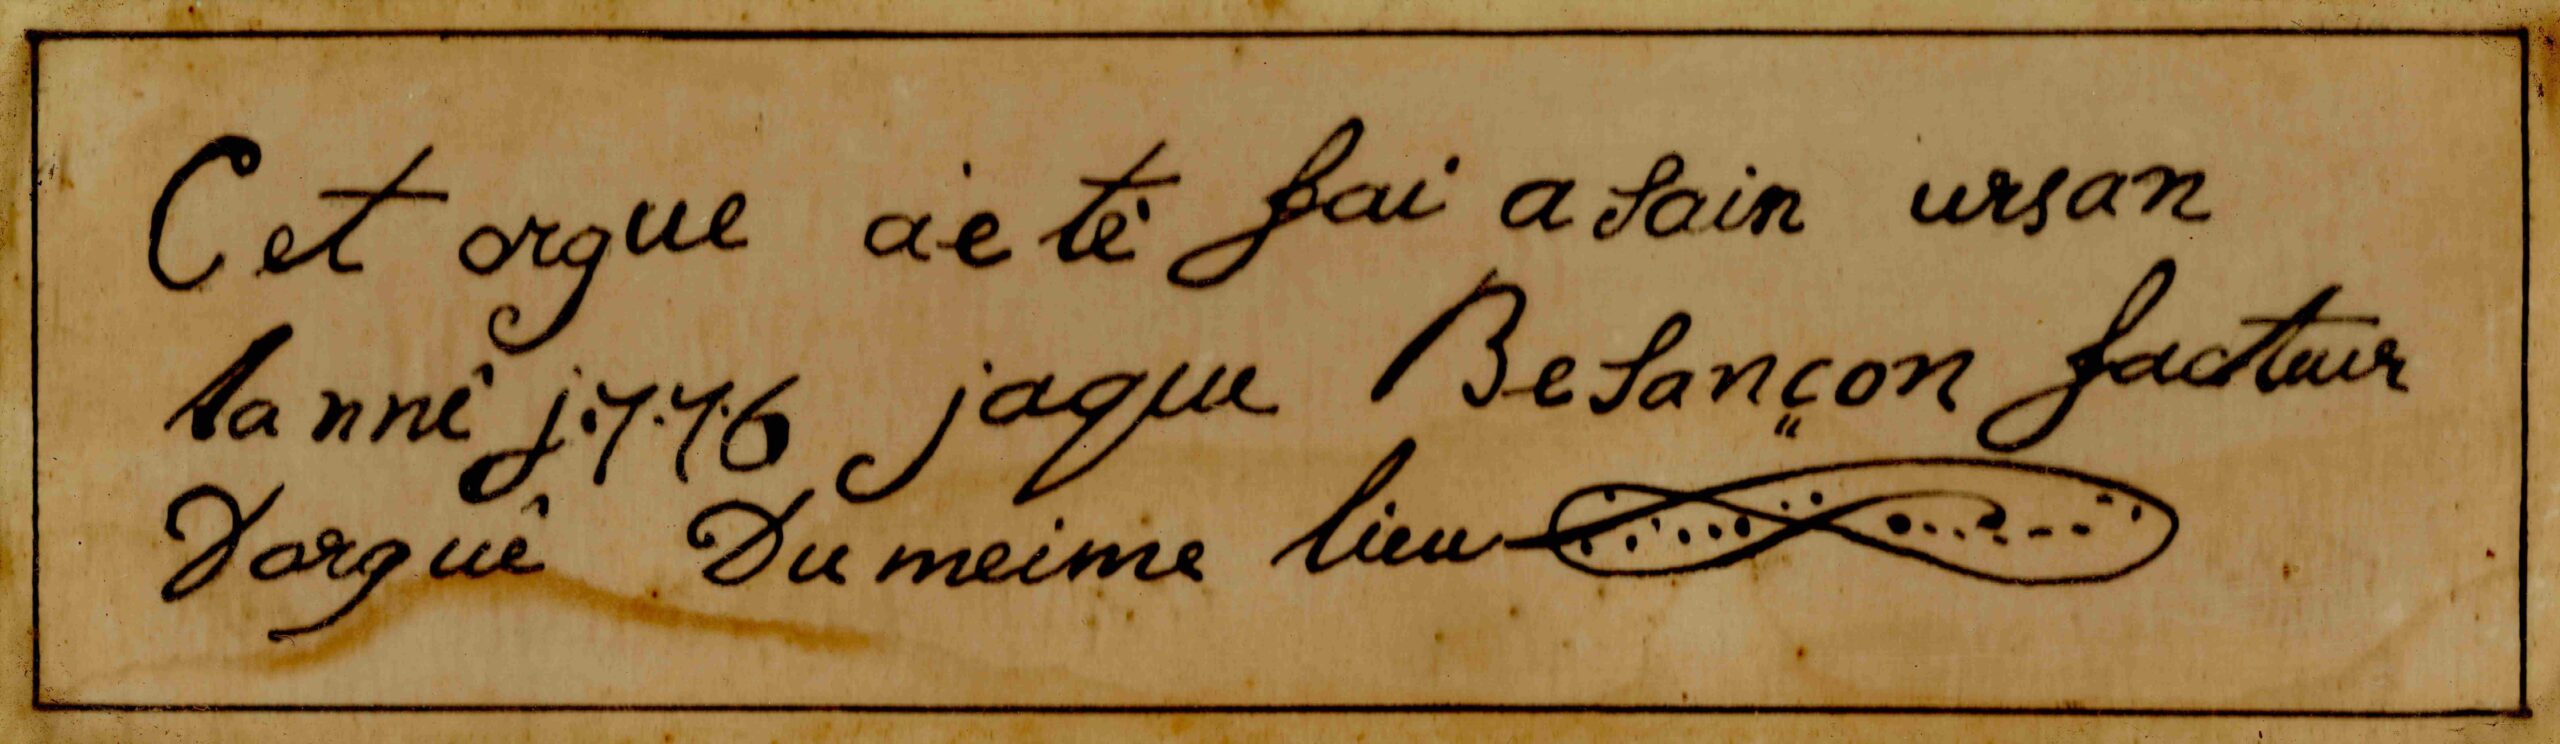 Cet orgue a été fai a sain ursan
lanné j.7.7.6 jaque Besançon facteur
Dorguê Du meime lieu